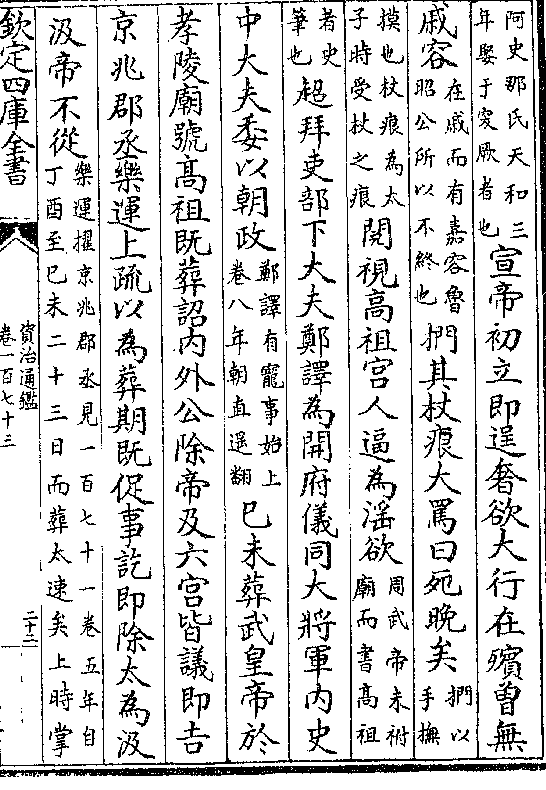 阿史那氏天和三
年娶于突厥者也
宣帝初立即逞奢欲大行在殯曾無
戚容
在戚而有嘉容魯
昭公所以不終也
捫其杖痕大罵曰死晚矣
捫以
手撫
摸也杖痕為太
子時受杖之痕
閱視高祖宮人逼為淫欲
周武帝未祔
廟而書高祖
者史
筆也
超拜吏部下大夫鄭譯為開府儀同大將軍内史
中大夫委以朝政
鄭譯有寵事始上
卷八年朝直遥翻
己未葬武皇帝於
孝陵廟號髙祖既葬詔内外公除帝及六宮皆議即吉
京兆郡丞樂運上疏以為葬期既促事訖即除太為汲
汲帝不從
樂運擢京兆郡丞見一百七十一卷五年自
丁酉至己未二十三日而葬太速矣上時掌
欽定四庫全書
資治通鑑
卷一百七十三